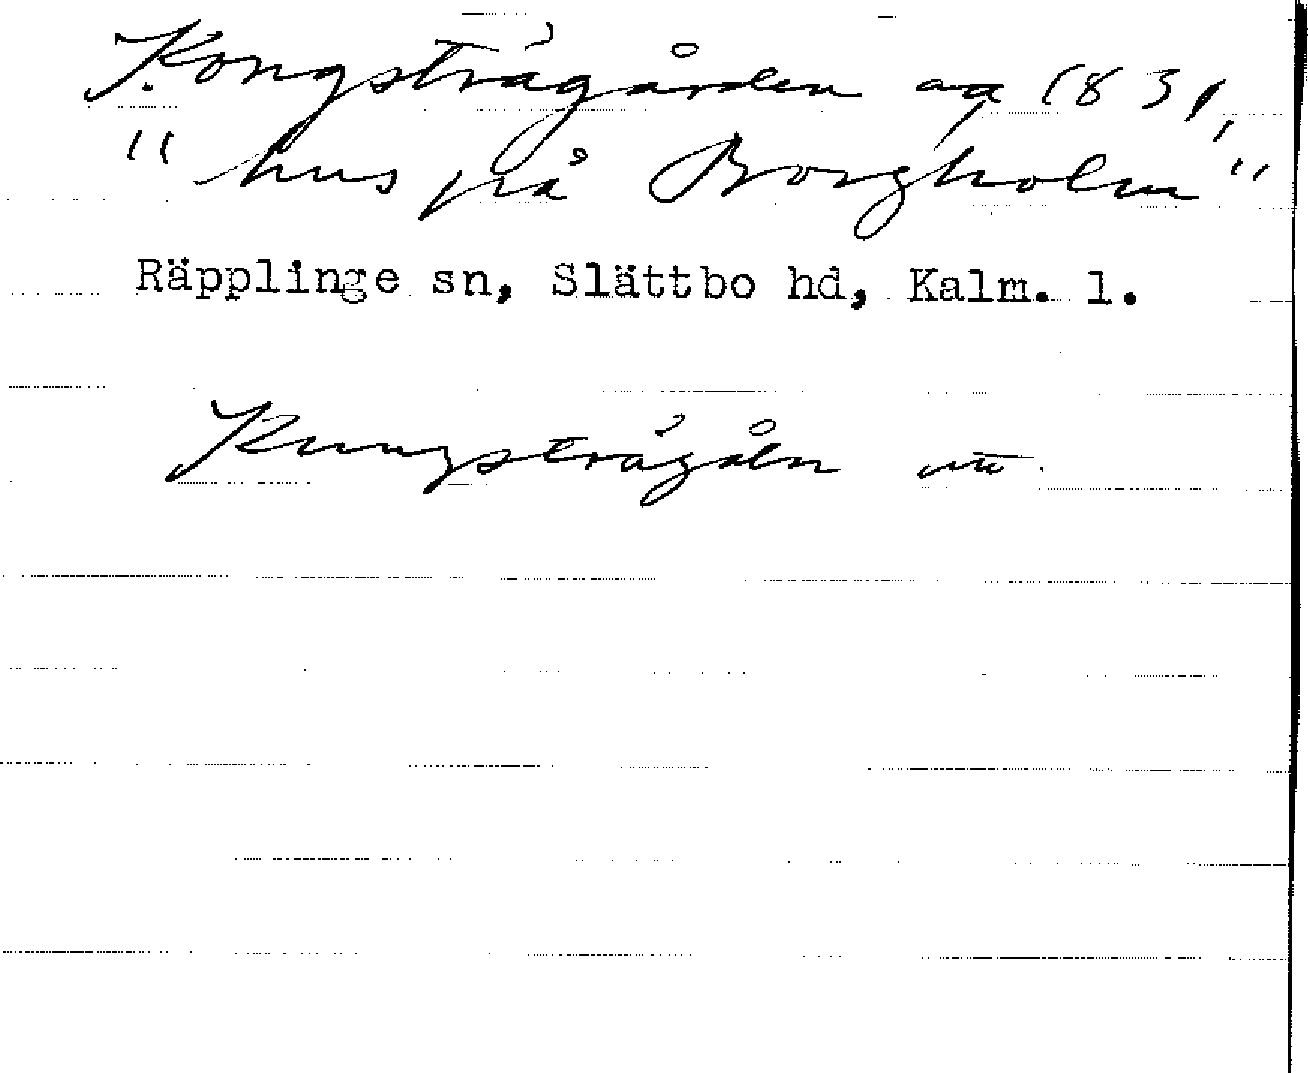 Kongsträgården aq 1831,
"hus på Borgholm"
Räpplinge sn, Slättbo hd, Kalm. l.
Kungsträgåln